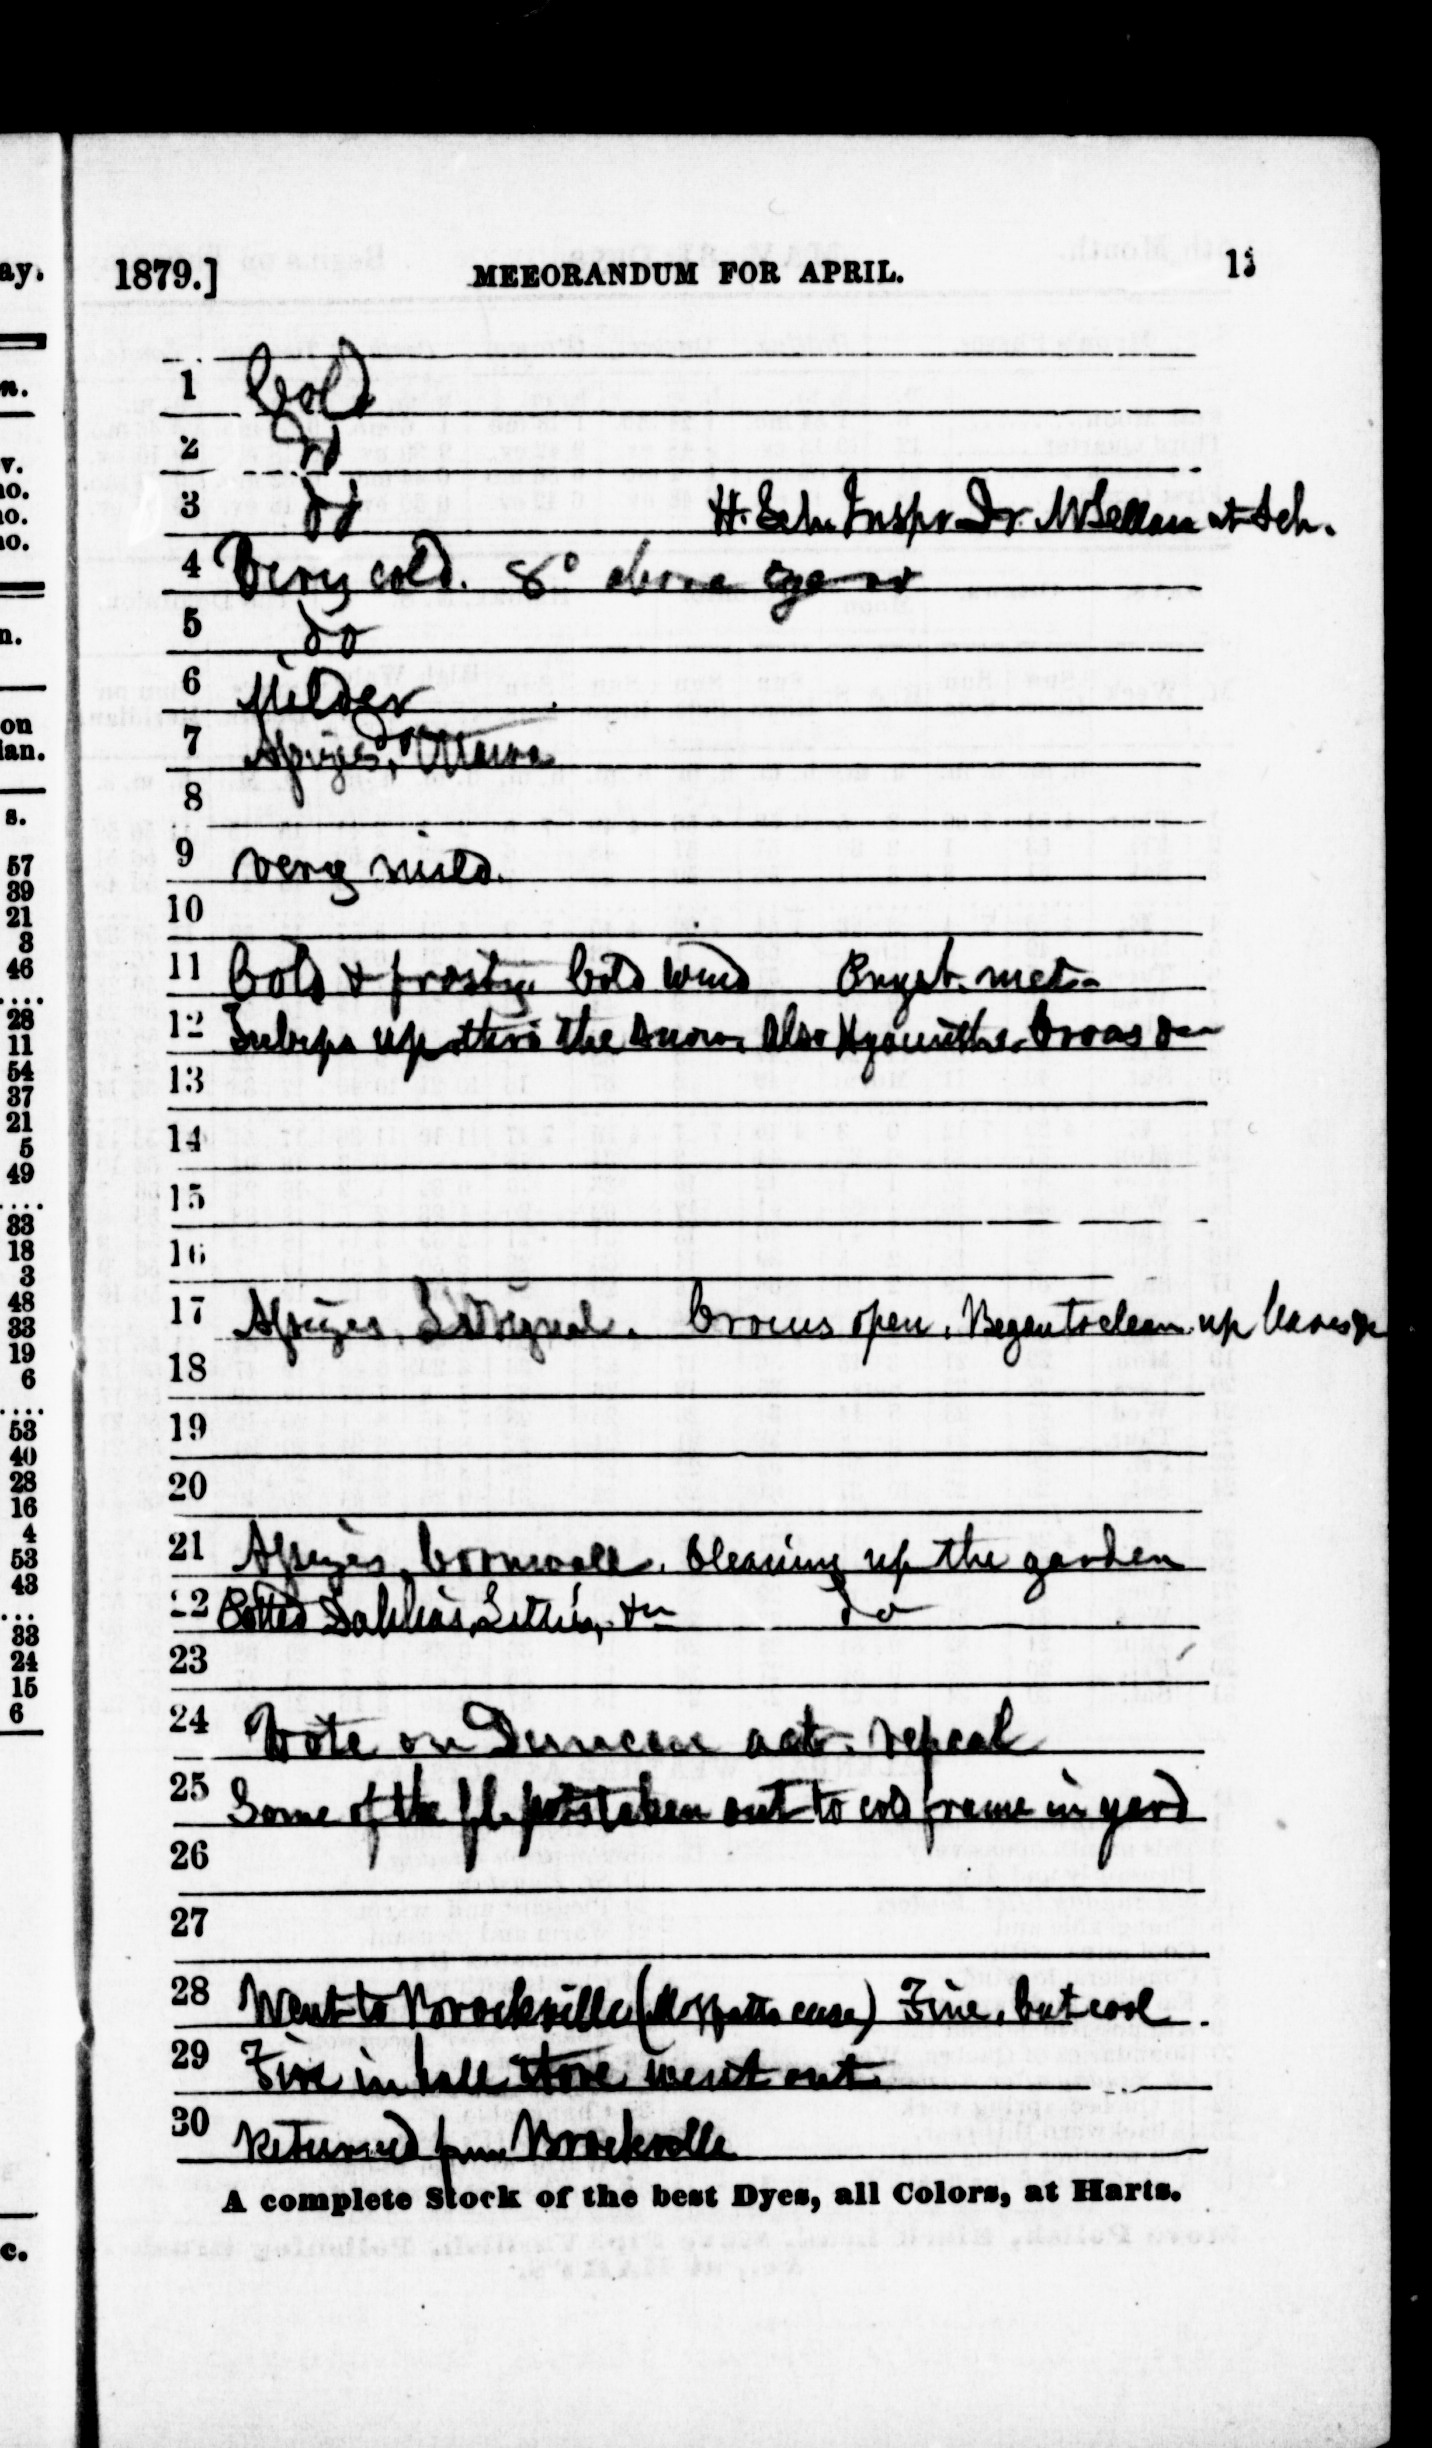 1879.] MEEORANDUM FOR APRIL. 13
1 Cold
2 do
3 do H. Sch. Inspr Dr. McLellan at Sch.
4 Very cold. 8° above zero
5 do
6 Milder
7 Assizes, Ottawa
8
9 Very mild.
10
11 Cold & frosty. Cold wind met.
12 Tulips up thro the snow. Also Hyacinths. Crocus
13
14
15
16
17 Assizes, L'Orignal. Crocus open. Began to clean up leaves &c
18
19
20
21 Assizes, Cornwall. Cleaning up the garden
22 Potted Dahlias, Lillies, &c do
23
24 Vote on Duncan act. repeal
25 Some of the fl. pots taken out to cold frame in yard
26
27
28 Went to Brockville (Moffatts case) Fine, but cool.
29 Fire in hall stove went out.
30 Returned from Brockville
A complete Stock of the best Dyes, all Colors, at Harts.
ay.
n.
v.
no.
no.
no.
n.
on
ian.
s.
57
39
21
3
46
....
28
11
54
37
21
5
49
....
33
18
3
48
33
19
6
....
53
40
28
16
4
53
43
...
33
24
15
6
c.